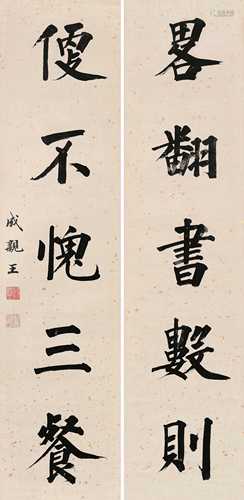 畧翻書數則
便不愧三餐
成親王